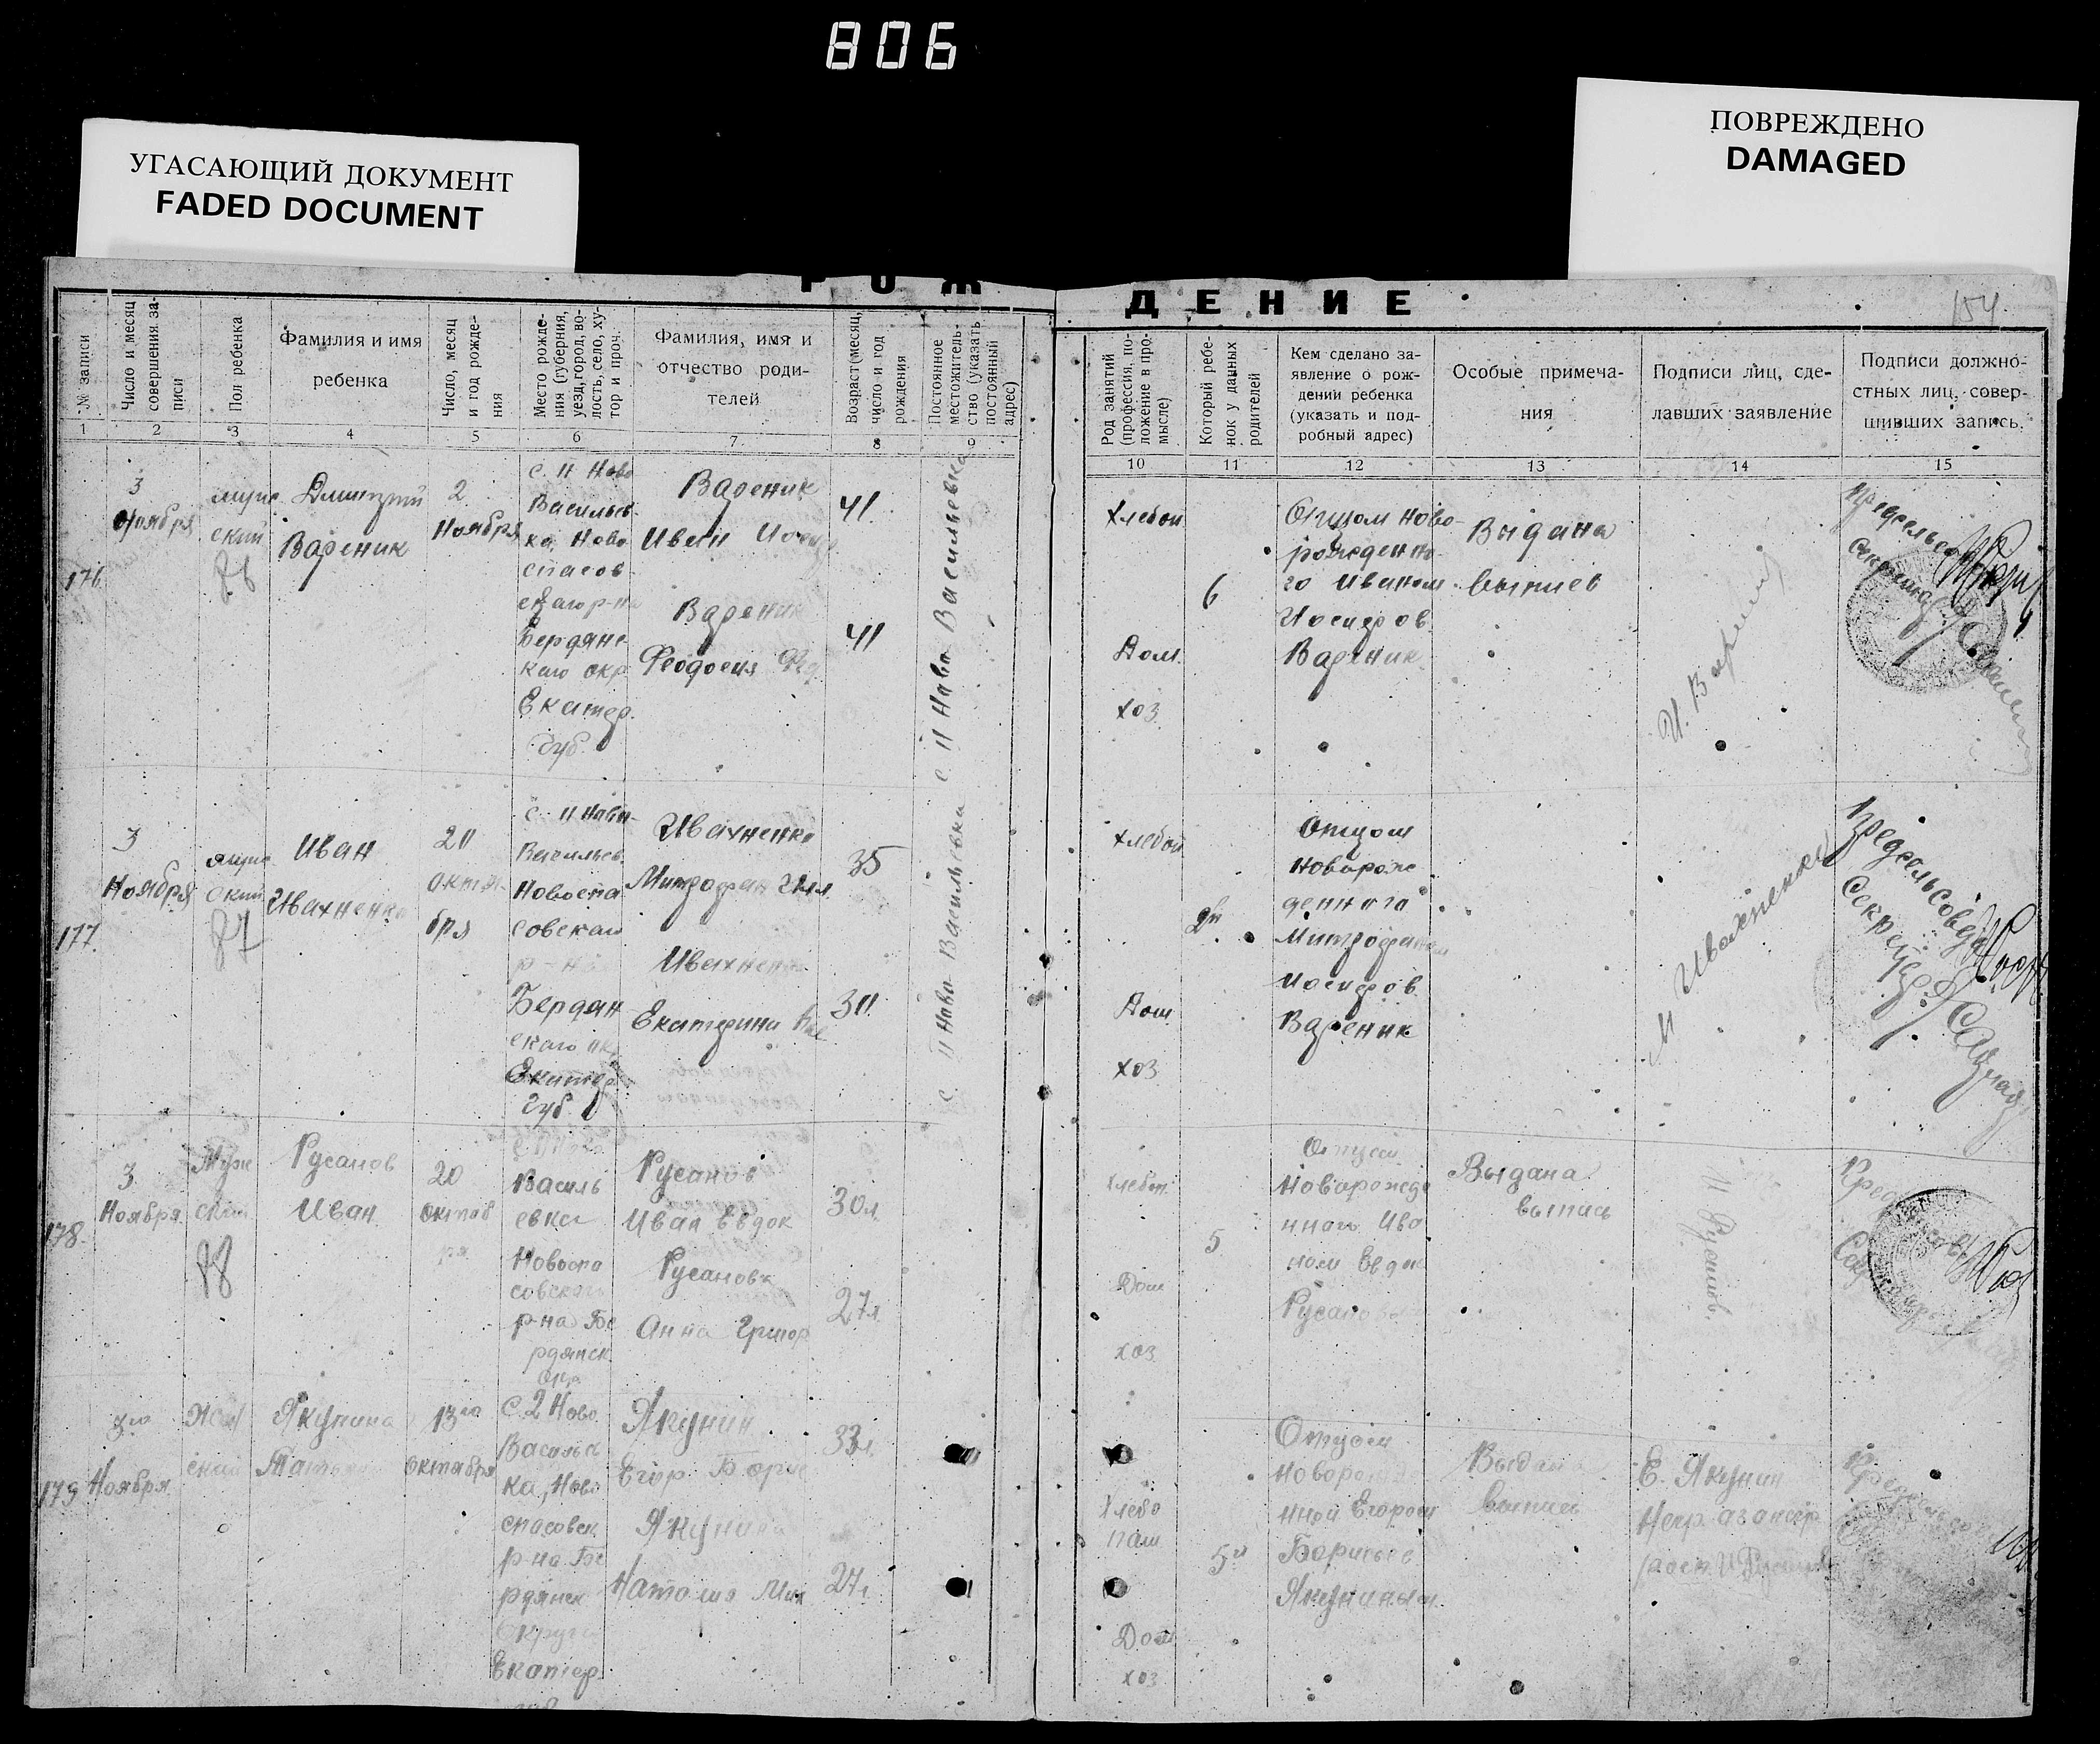 806
УГАСАЮЩИЙ ДОКУМЕНТ
FADED DOCUMENT
ПОВРЕЖДЕНО
DAMAGED
РОЖДЕНИЕ
154
№ записи
Число и месяц
совершения за-
писи
Пол ребенка
Фамилия и имя
ребенка
Число, месяц
и год рожде-
ния
Место рожде-
ния (губерния,
уезд, город, во-
лость, село, ху-
тор и проч.
Фамилия, имя и
отчество роди-
телей
Возраст (месяц,
число и год
рождения
Постоянное
местожитель-
ство (указать
постоянный
адрес)
Род занятий
(профессия, по-
ложение в про-
мысле)
Который ребе-
нок у данных
родителей
Кем сделано за-
явление о рож-
дении ребенка
(указать и под-
робный адрес)
Особые примеча-
ния
Подписи лиц, сде-
лавших заявление
Подписи должно-
стных лиц, совер-
шивших запись.
1 2 3 4 5 6 7 8 9 10 11 12 13 14 15
176
3
Ноября
мужс
ский
Дмитрий
Вареник
2
Ноября
с. II Ново
Васильев
ка, Ново
спасов
скаго р-на
Бердянс
каго окр
Екатер.
губ.
Вареник
Иван
Вареник
Феодосия
41
41
с. II Ново Васильевка
Хлебоп
Дом.
хоз
6
Отцом ново-
рожденно-
го Иваном
Иосифов
Вареник
Выдана
выпись
177
3
Ноября
ский
Иван
Ивахненко
20
октя-
бря
с. II Ново-
Васильев.
Новоспа
совскаго
р-на
Бердян
скаго
Екатер
губ.
Ивахненко
Митрофан
Ивахненко
Екатерина
35
30
с. II Ново Васильевка
Хлебоп
Дом
хоз
Отцом
новорож
деннаго
Митрофаном
Иосифов
Вареник
М Ивахненко
Предсельсовета
Секретарь
178
3
Ноября
Муж
ский
Русанов
Иван
20
октяб
ря
Василь
евка
Новоспа
совскаго
р-на Бе
рдянск
Окр.
Русанов
Иван Евдок
Русанова
Анна Григор
30л.
27л
Хлебоп.
Дом
хоз
5
Отцом
Новорожде
ннаго Ива
ном Евдок
Русановым
Выдана
выпись
И Русанов.
179
3го
Ноября
Жен
ский
Якунина
Татьяна
13го
октября
С. 2 Ново
Васильев
ка, Ново
спасовск
р-на Бе
рдянск
Округа
Екатер.
Якунин
Егор Борис
Якунина
Наталия Мих
33л
27л
Хлебо
паш
Дом
хоз
5й
Отцом
новорожде
нной Егором
Борисов
Якуниным
Выдана
выпись
Е. Якунин